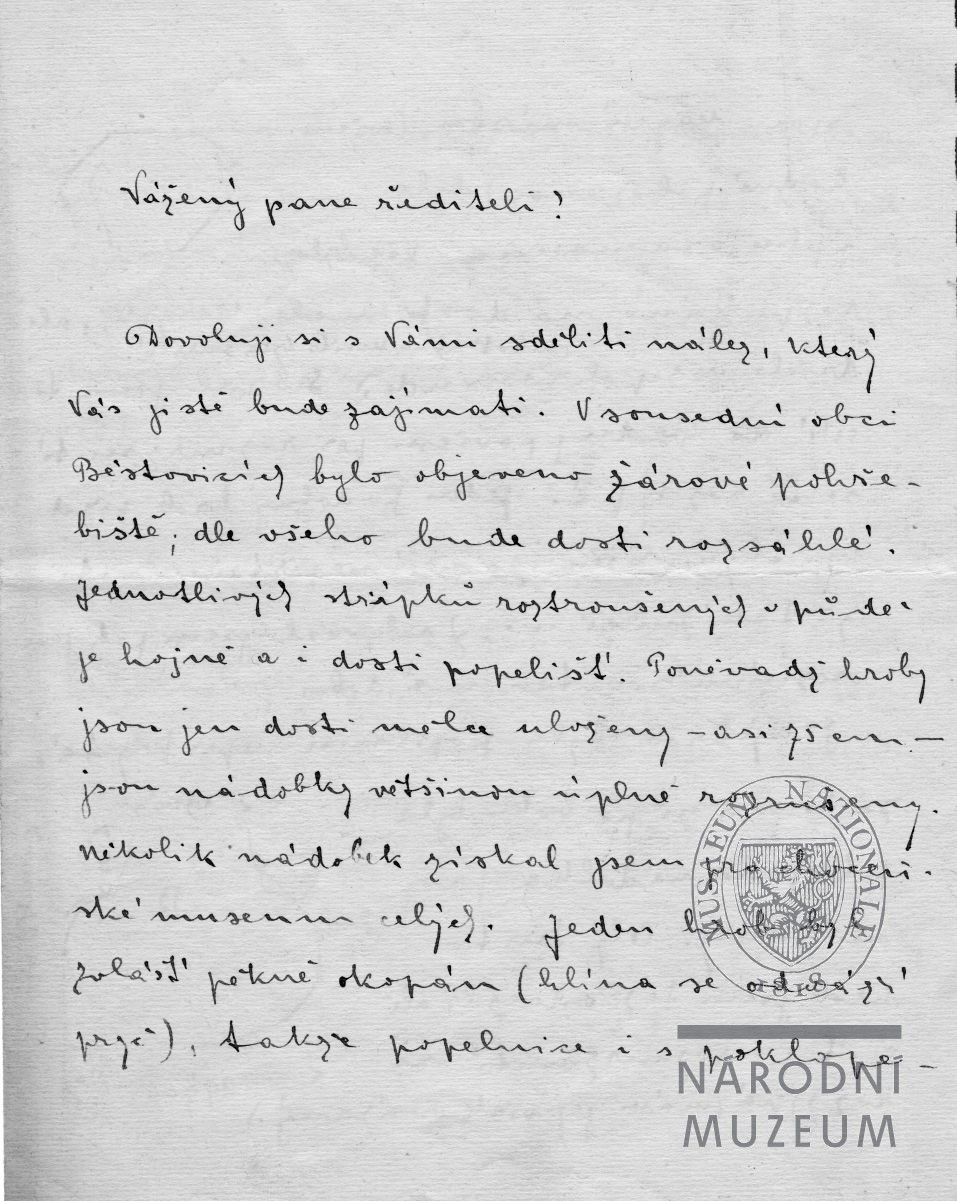 Vážený pane řediteli!
Dovoluji si s Vámi sděliti nález, který
Vás jistě bude zajímati. V sousední obci
Běstovicích bylo objeveno žárové pohře-
biště; dle všeho bude dosti rozsáhlé.
Jednotlivých střípků roztroušených v půdě
je hojně a i dosti popelišť. Poněvadž hroby
jsou jen dosti mělce uloženy – asi 75 cm –
jsou nádobky většinou úplně rozrušeny.
Několik nádobek získal jsem pro choceň-
ské museum celých. Jeden hrob byl
zvlášť pěkně okopán (hlína se odváží
pryč), takže popelnice i s poklope-
MUSAEUM NATIONALE
NÁRODNÍ
MUZEUM